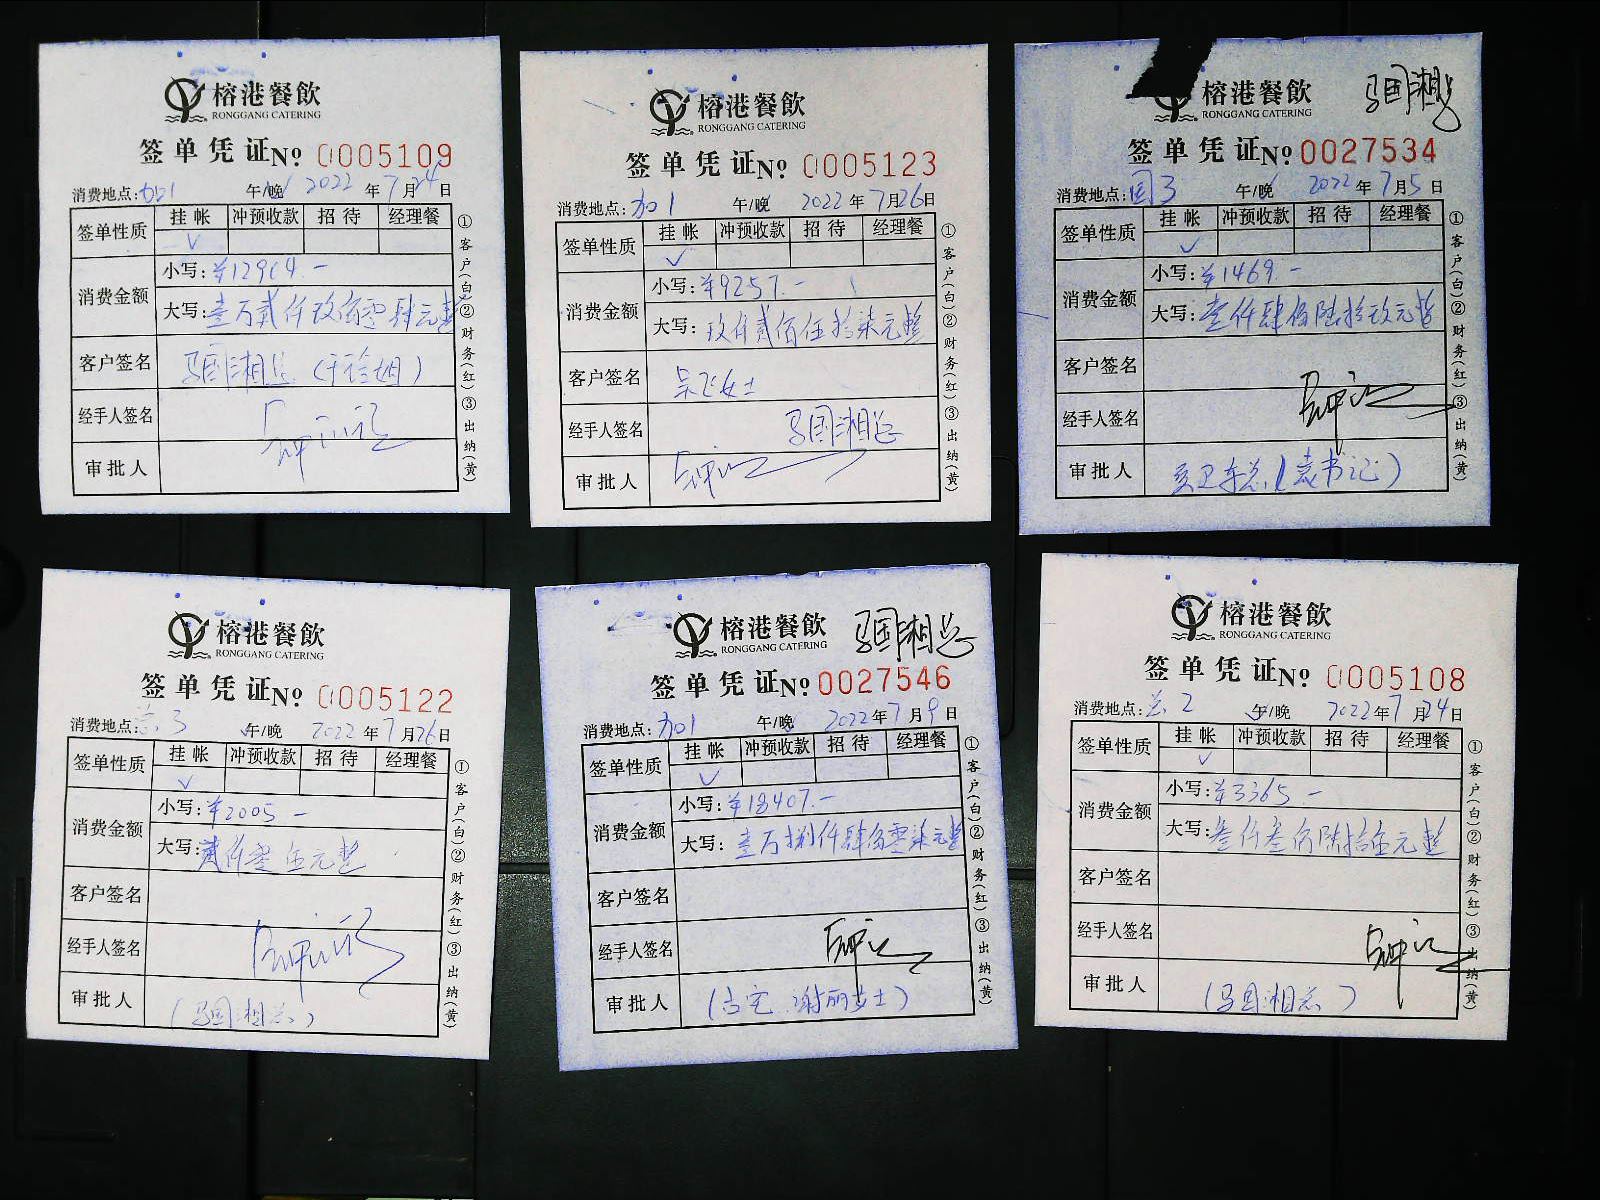 榕港餐飲
RONGGANG CATERING
签单凭证 No 0005109
消费地点:加1 午/晚 2022年7月24日
签单性质 挂帐 冲预收款 招待 经理餐
√
消费金额 小写:¥12904.-
大写:壹万贰仟玖佰零肆元整
客户签名 马国湘总
经手人签名
审批人
①客户(白)②财务(红)③出纳(黄)
榕港餐飲
RONGGANG CATERING
签单凭证 No 0005123
消费地点:加1 午/晚 2022年7月26日
签单性质 挂帐 冲预收款 招待 经理餐
√
消费金额 小写:¥9257.-
大写:玖仟贰佰伍拾柒元整
客户签名 吴飞女士
经手人签名 马国湘总
审批人
①客户(白)②财务(红)③出纳(黄)
榕港餐飲 马国湘总
RONGGANG CATERING
签单凭证 No 0027534
消费地点:国3 午/晚 2022年7月5日
签单性质 挂帐 冲预收款 招待 经理餐
√
消费金额 小写:¥1469.-
大写:壹仟肆佰陆拾玖元整
客户签名
经手人签名
审批人 卫东总(袁书记)
①客户(白)②财务(红)③出纳(黄)
榕港餐飲
RONGGANG CATERING
签单凭证 No 0005122
消费地点:总3 午/晚 2022年7月26日
签单性质 挂帐 冲预收款 招待 经理餐
√
消费金额 小写:¥2005.-
大写:贰仟零伍元整
客户签名
经手人签名
审批人 (马国湘总)
①客户(白)②财务(红)③出纳(黄)
榕港餐飲 马国湘总
RONGGANG CATERING
签单凭证 No 0027546
消费地点:加1 午/晚 2022年7月9日
签单性质 挂帐 冲预收款 招待 经理餐
√
消费金额 小写:¥18407.-
大写:壹万捌仟肆佰零柒元整
客户签名
经手人签名
审批人 (古宅 谢丽女士)
①客户(白)②财务(红)③出纳(黄)
榕港餐飲
RONGGANG CATERING
签单凭证 No 0005108
消费地点:总2 午/晚 2022年7月24日
签单性质 挂帐 冲预收款 招待 经理餐
√
消费金额 小写:¥3365.-
大写:叁仟叁佰陆拾伍元整
客户签名
经手人签名
审批人 (马国湘总)
①客户(白)②财务(红)③出纳(黄)